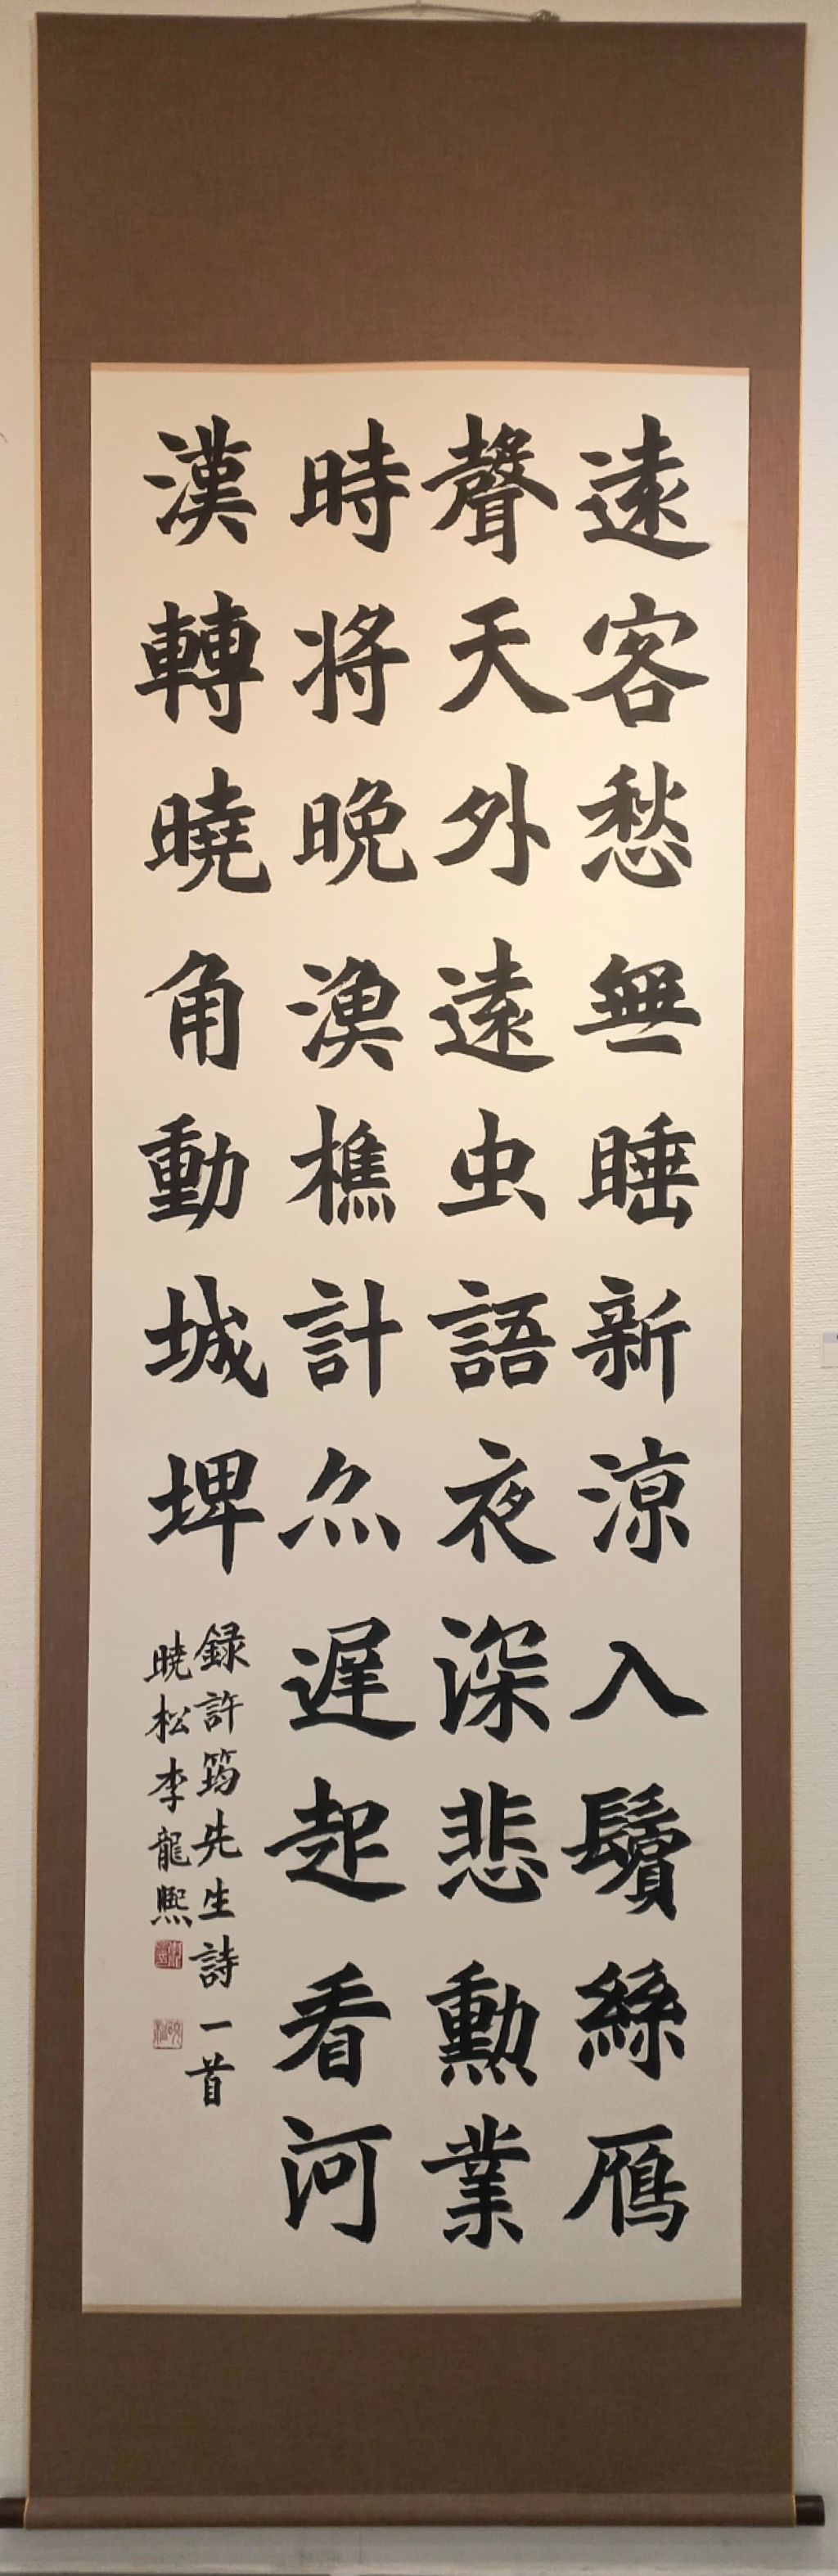 遠客愁無睡新涼入鬢絲雁
聲天外遠虫語夜深悲勳業
時将晩漁樵計尒遅起看河
漢轉曉角動城埤
録許筠先生詩一首
暁松李龍熙